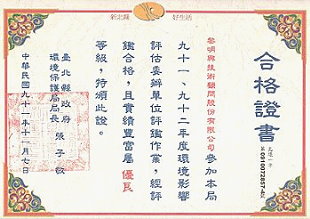 新北縣 好生活
合格證書
黎明興技術顧問股份有限公司參加本局
九十一、九十二年度環境影響
評估委辦單位評鑑作業，經評
鑑合格，且實績豐富屬優良
等級，特頒此證。
臺北縣政府
環境保護局局長 張子敬
中華民國九十二年十二月七日